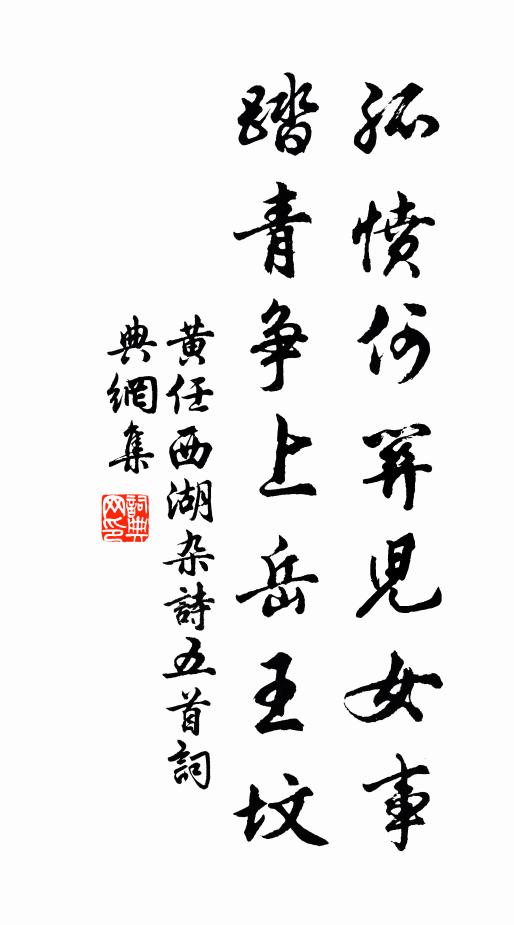 孤憤何關兒女事
踏青争上岳王坟
黄任西湖杂詩五首詞
典網集
詞典网印